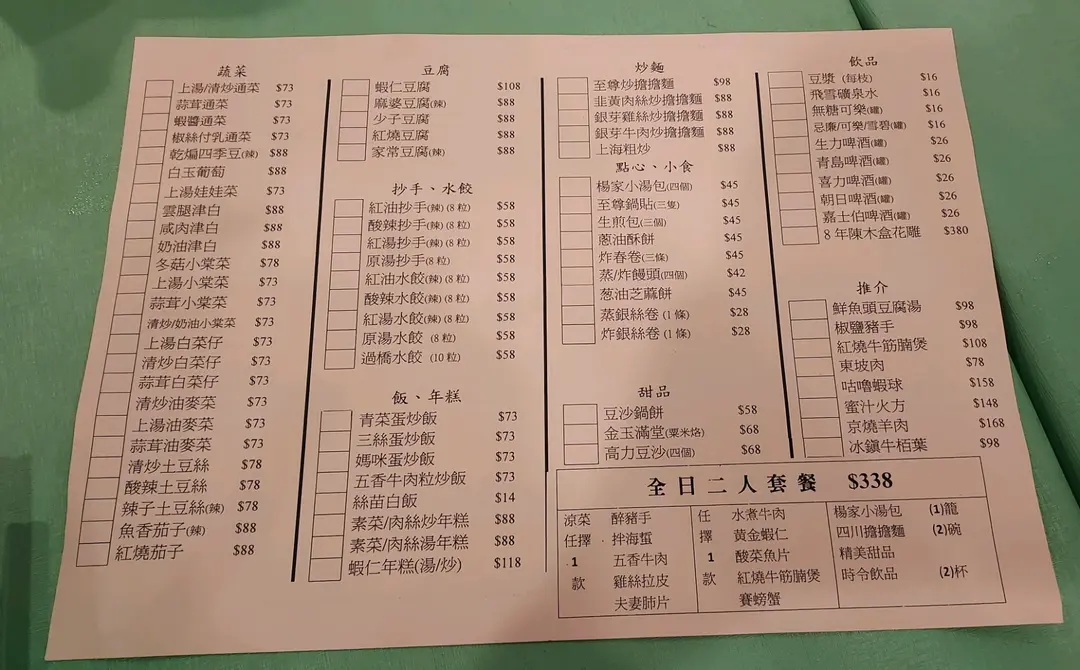 蔬菜
上湯/清炒通菜 $73
蒜茸通菜 $73
蝦醬通菜 $73
椒絲付乳通菜 $73
乾煸四季豆(辣) $88
白玉葡萄 $88
上湯娃娃菜 $73
雲腿津白 $88
咸肉津白 $88
奶油津白 $88
冬菇小棠菜 $78
上湯小棠菜 $73
蒜茸小棠菜 $73
清炒/奶油小棠菜 $73
上湯白菜仔 $73
清炒白菜仔 $73
蒜茸白菜仔 $73
清炒油麥菜 $73
上湯油麥菜 $73
蒜茸油麥菜 $73
清炒土豆絲 $78
酸辣土豆絲 $78
辣子土豆絲(辣) $78
魚香茄子(辣) $88
紅燒茄子 $88
豆腐
蝦仁豆腐 $108
麻婆豆腐(辣) $88
少子豆腐 $88
紅燒豆腐 $88
家常豆腐(辣) $88
抄手、水餃
紅油抄手(辣) (8粒) $58
酸辣抄手(辣) (8粒) $58
紅湯抄手(辣) (8粒) $58
原湯抄手(8粒) $58
紅油水餃(辣) (8粒) $58
酸辣水餃(辣) (8粒) $58
紅湯水餃(辣) (8粒) $58
原湯水餃 (8粒) $58
過橋水餃 (10粒) $58
飯、年糕
青菜蛋炒飯 $73
三絲蛋炒飯 $73
媽咪蛋炒飯 $73
五香牛肉粒炒飯 $73
絲苗白飯 $14
素菜/肉絲炒年糕 $88
素菜/肉絲湯年糕 $88
蝦仁年糕(湯/炒) $118
炒麵
至尊炒擔擔麵 $98
韭黃肉絲炒擔擔麵 $88
銀芽雞絲炒擔擔麵 $88
銀芽牛肉炒擔擔麵 $88
上海粗炒 $88
點心、小食
楊家小湯包(四個) $45
至尊鍋貼(三隻) $45
生煎包(三個) $45
蔥油酥餅 $45
炸春卷(三條) $45
蒸/炸饅頭(四個) $42
葱油芝麻餅 $45
蒸銀絲卷 (1條) $28
炸銀絲卷 (1條) $28
甜品
豆沙鍋餅 $58
金玉滿堂(粟米烙) $68
高力豆沙(四個) $68
飲品
豆漿 (每枝) $16
飛雪礦泉水 $16
無糖可樂(罐) $16
忌廉/可樂/雪碧(罐) $16
生力啤酒(罐) $26
青島啤酒(罐) $26
喜力啤酒(罐) $26
朝日啤酒(罐) $26
嘉士伯啤酒(罐) $26
8年陳木盒花雕 $380
推介
鮮魚頭豆腐湯 $98
椒鹽豬手 $98
紅燒牛筋腩煲 $108
東坡肉 $78
咕嚕蝦球 $158
蜜汁火方 $148
京燒羊肉 $168
冰鎮牛栢葉 $98
全日二人套餐 $338
涼菜 醉豬手 任 水煮牛肉 楊家小湯包 (1)籠
任擇 拌海蜇 擇 黃金蝦仁 四川擔擔麵 (2)碗
1 五香牛肉 1 酸菜魚片 精美甜品
款 雞絲拉皮 款 紅燒牛筋腩煲 時令飲品 (2)杯
夫妻肺片 賽螃蟹